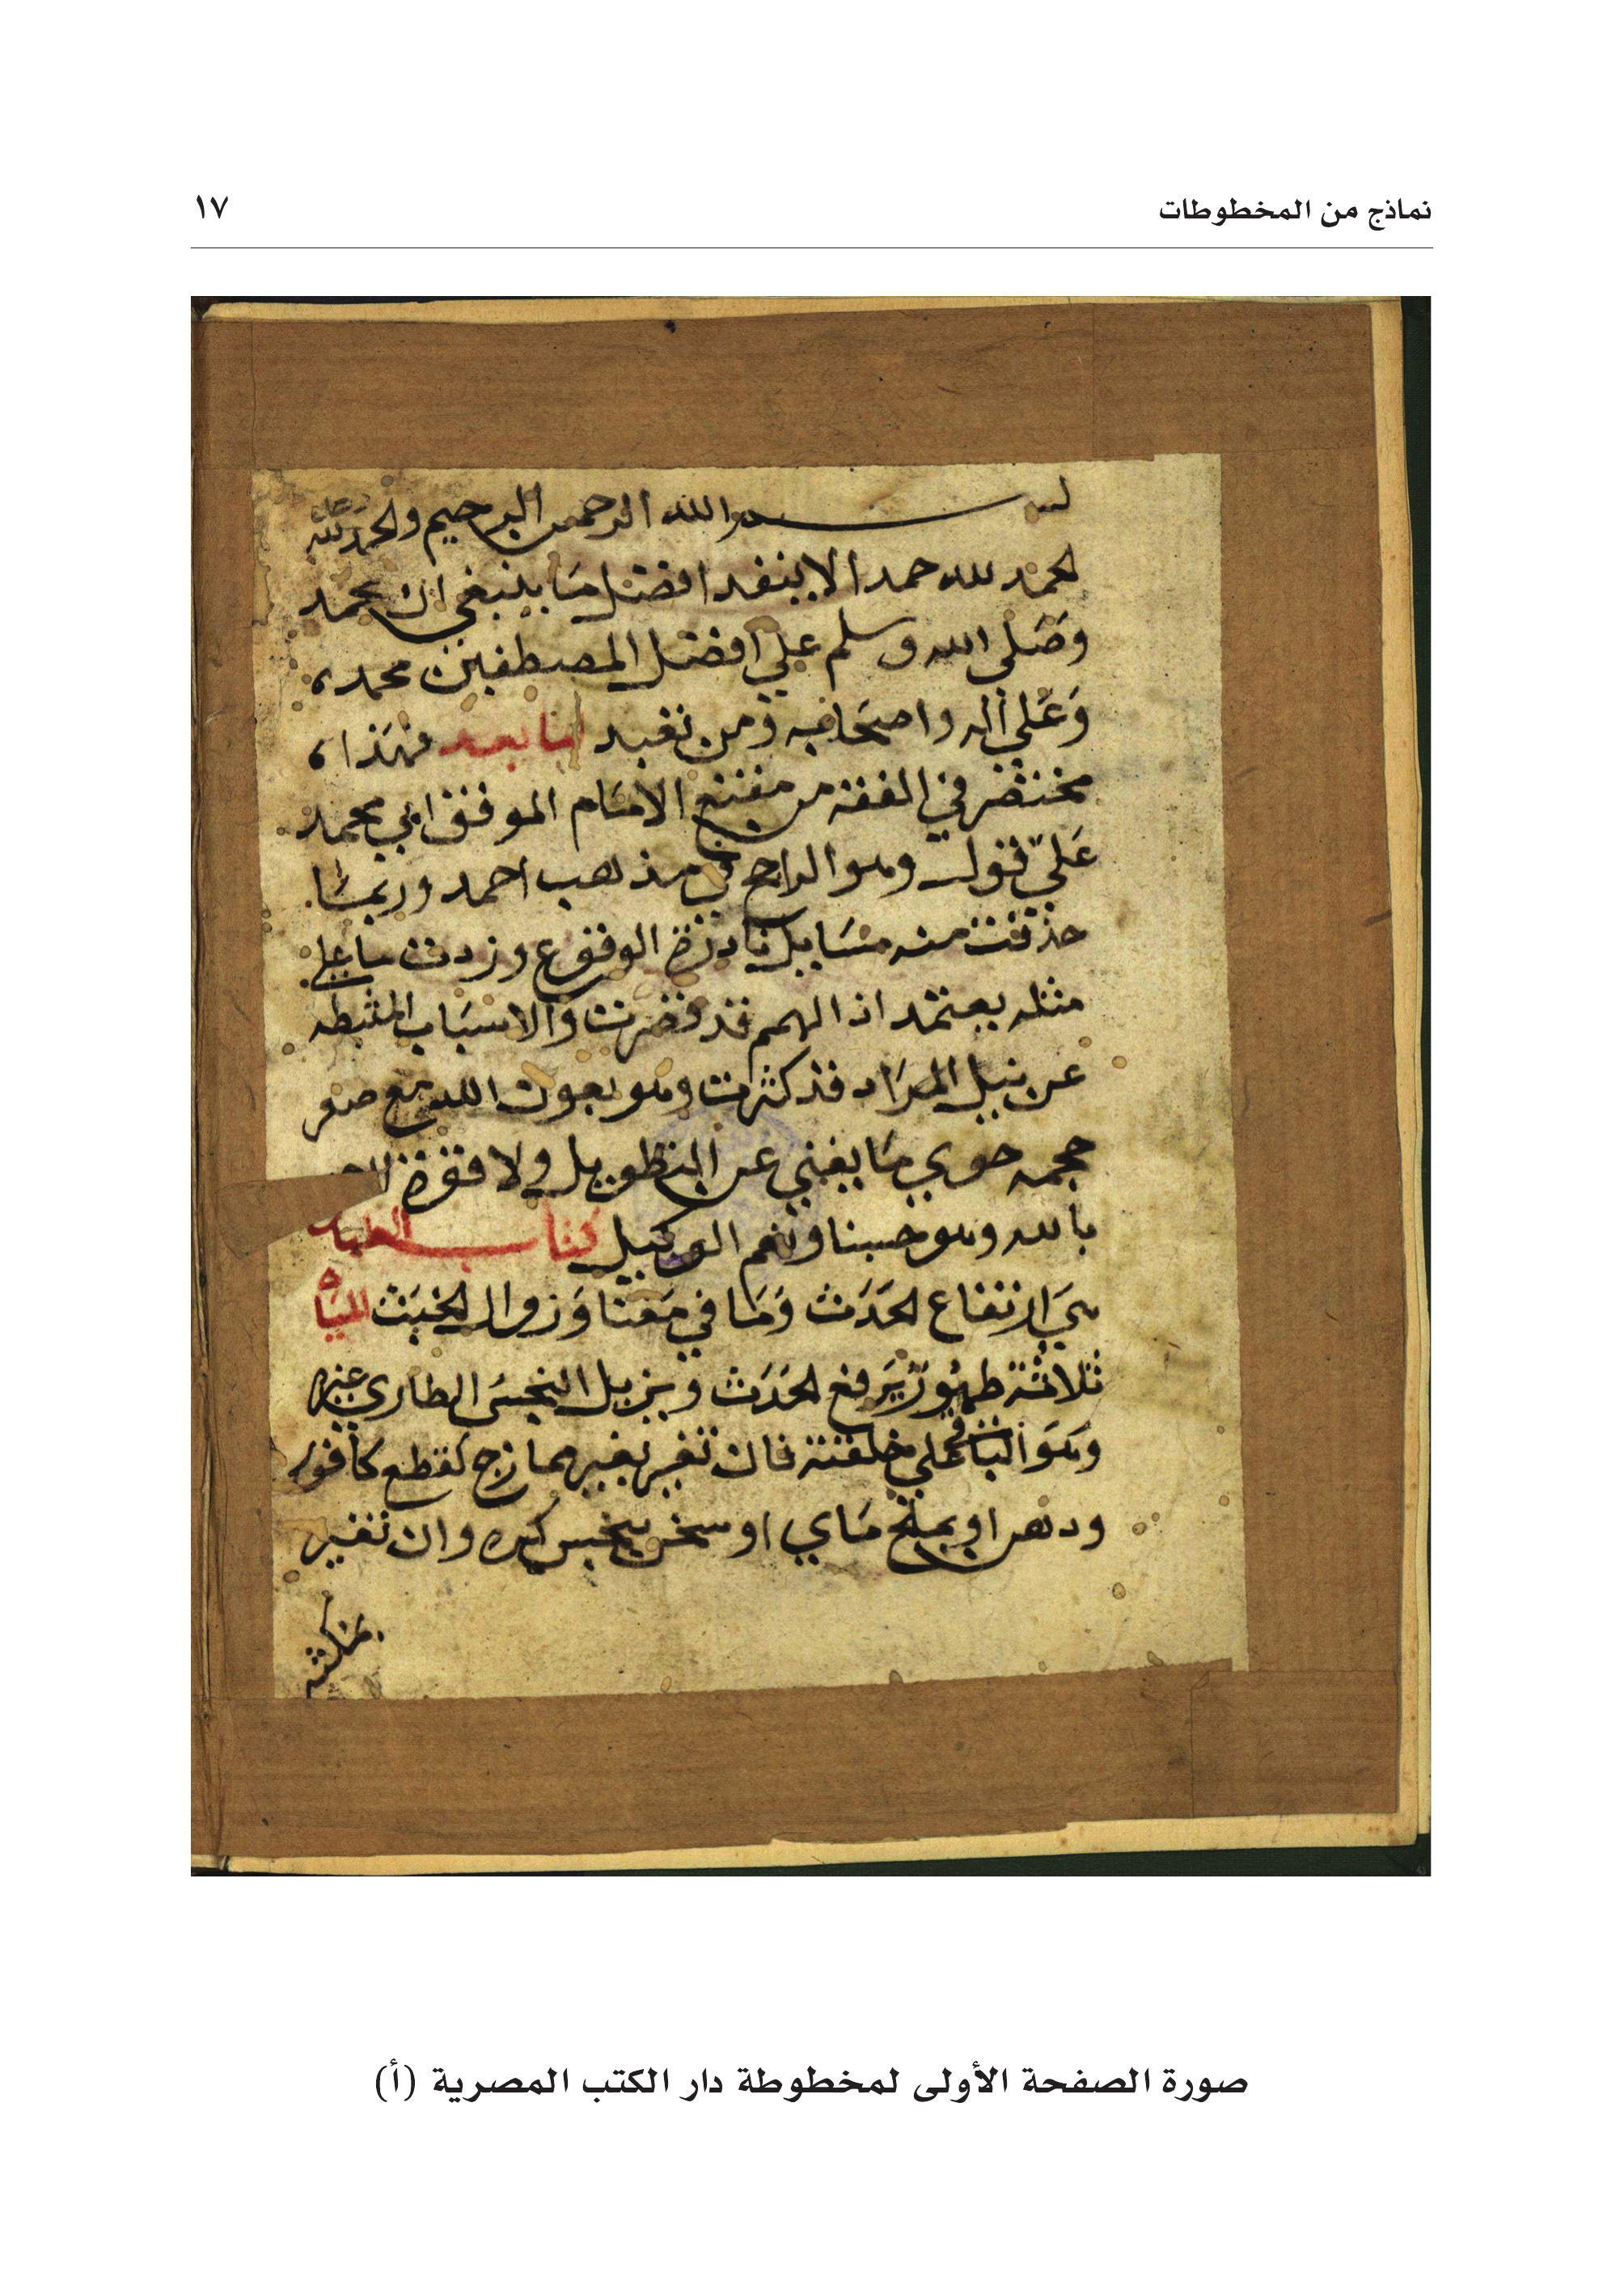 نماذج من المخطوطات
١٧
بسم الله الرحمن الرحيم والحمد لله
الحمد لله حمدا لا ينفد افضل ما ينبغي ان يحمد
وصلى الله وسلم علي افضل المصطفين محمد
وَعَلي اله واصحَابه ومن تعبد اما بعد فهَذا
مختصر في الفقه من مقنع الامَام الموفق ابي محمد
عَلي قول وهو الراجح في مذهب احمد وربمَا
حذفت منه مسَايل نادرة الوقوع وزدت ما علي
مثله يعتمد اذ الهمم قد قصرت وَالاسبَاب المثبطه
عن نيل المرَاد قد كثرت وهو بعون الله مع صغر
حجمه حوي مَا يغني عن التطويل ولا قوة
بالله وهو حسبنا ونعم الوكيل كتاب
هيَ ارتفاع الحَدَث وَمَا في مَعنا وَزوال الخبَث الميَاه
ثلاثة طهُورٌ يَرفع الحَدَث ويزيل النجسَ الطاري غيره
وهوَ الباقي علي خلقته فان تغير بغير ممازج كقطع كافور
ودهن او بملح مَاي او سخن بنجس كره وان تغير
بمكثه
صورة الصفحة الأولى لمخطوطة دار الكتب المصرية (أ)